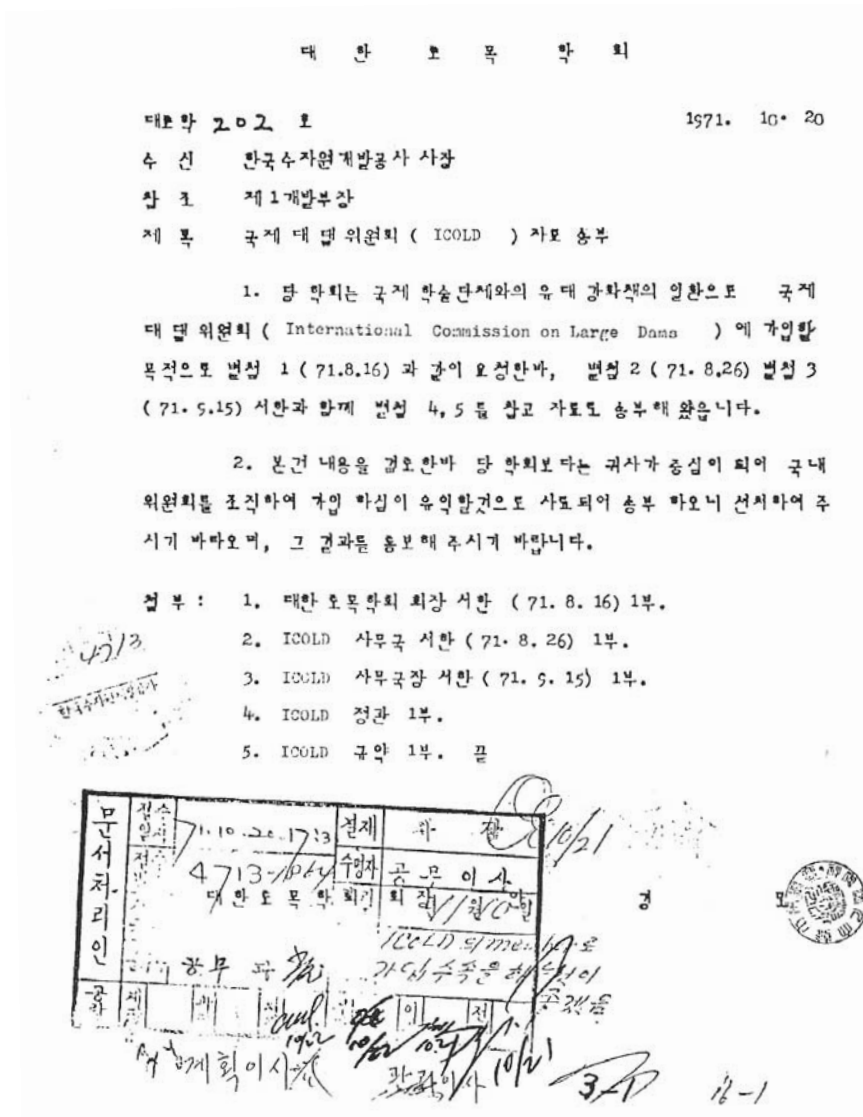 대 한 토 목 학 회
대토학 202 호 1971. 10. 20
수 신 한국수자원개발공사 사장
참 조 제1개발부장
제 목 국제 대 댐 위원회 ( ICOLD ) 자료 송부
1. 당 학회는 국제 학술단체와의 유대 강화책의 일환으로 국제
대 댐 위원회 ( International Commission on Large Dams ) 에 가입할
목적으로 별첨 1 ( 71.8.16) 과 같이 요청한바, 별첨 2 ( 71. 8.26) 별첨 3
( 71. 9.15) 서한과 함께 별첨 4, 5 를 참고 자료로 송부해 왔읍니다.
2. 본건 내용을 검토한바 당 학회보다는 귀사가 중심이 되어 국내
위원회를 조직하여 가입 하심이 유익할것으로 사료되어 송부 하오니 선처하여 주
시기 바라오며, 그 결과를 통보해 주시기 바랍니다.
첨 부 : 1. 대한 토목학회 회장 서한 ( 71. 8. 16) 1부.
2. ICOLD 사무국 서한 ( 71. 8. 26) 1부.
3. ICOLD 사무국장 서한 ( 71. 9. 15) 1부.
4. ICOLD 정관 1부.
5. ICOLD 규약 1부. 끝
4713
문서처리인
접수일시 71.10.20.17:3 결재
4713 수명자 공무이사
대 한 토 목 학 회 회 장
ICOLD의 member로
가입 수속을
공무
공람
10/21
10/22
10/22
10/21
3-1
16-1